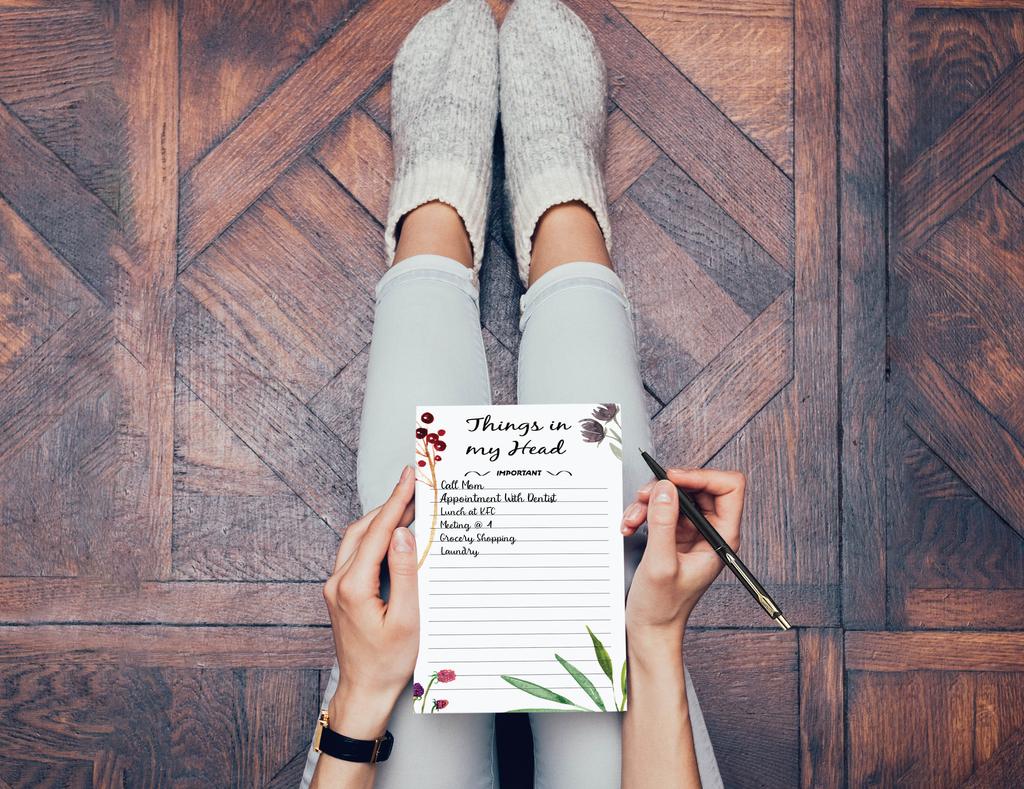 Things in
my Head
IMPORTANT
Call Mom
Appointment With Dentist
Lunch at KFC
Meeting @ 4
Grocery Shopping
Laundry